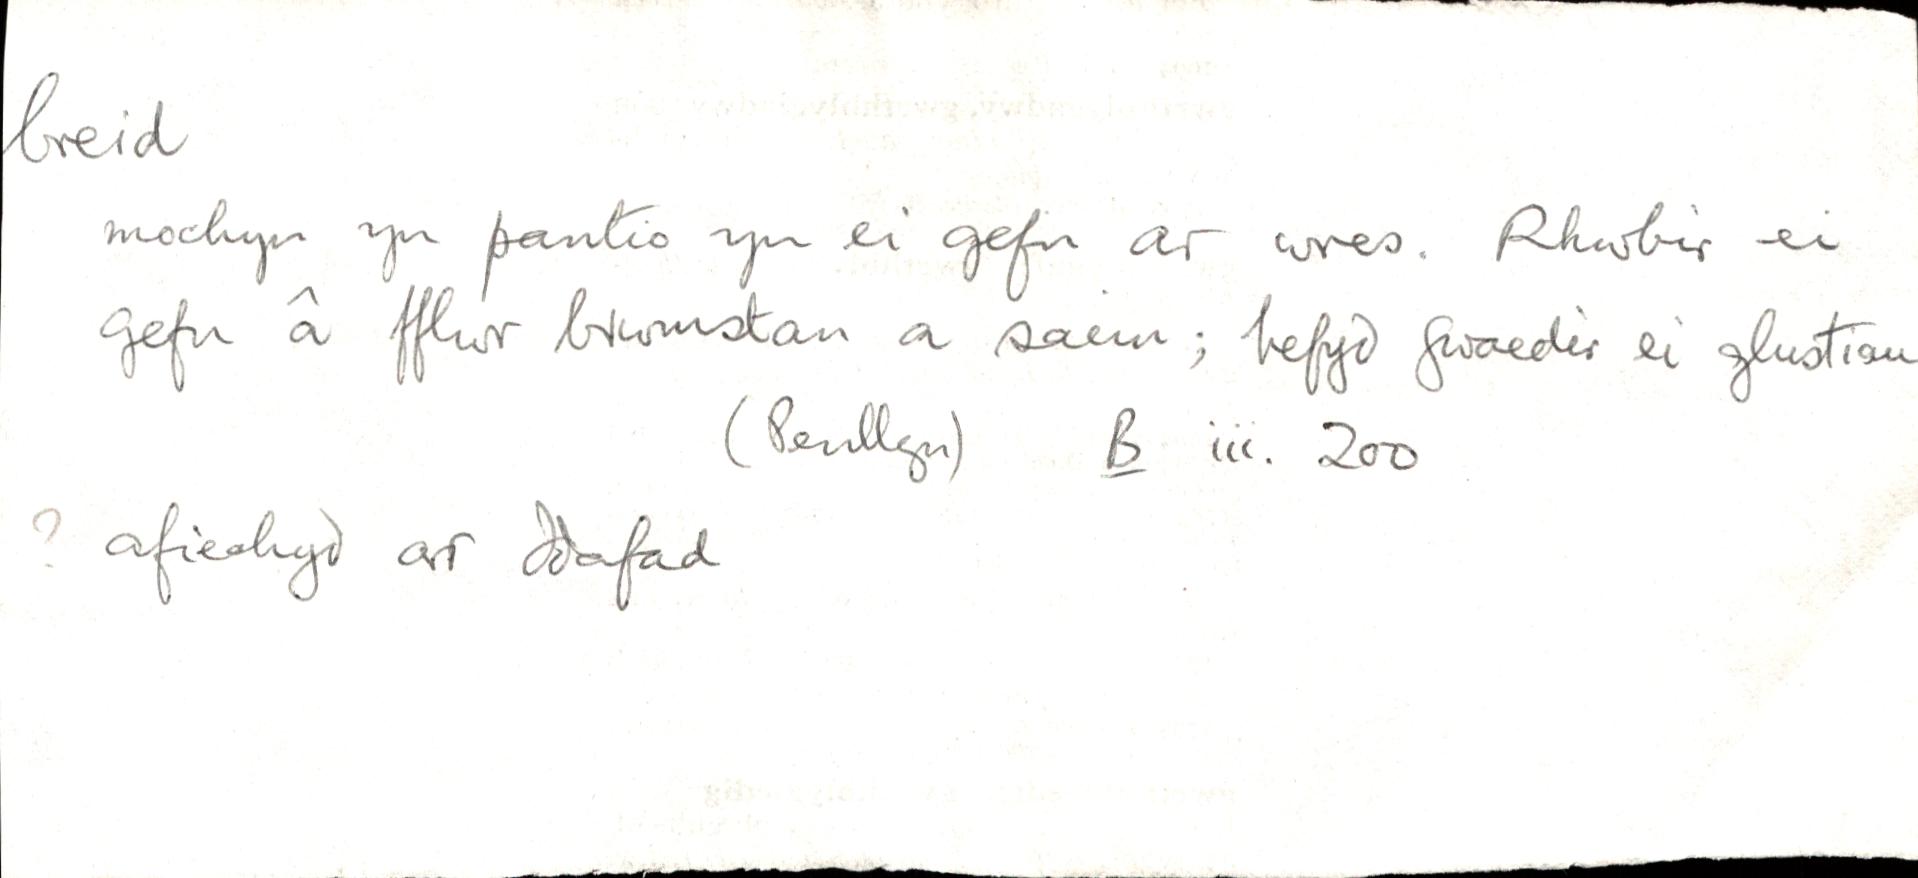 breid
mochyn yn pantio yn ei gefn ar wres. Rhwbir ei
gefn â fflwr brwmstan a saim; hefyd gwaedir ei glustiau
(Penllyn) B iii. 200
? afiechyd ar ddafad